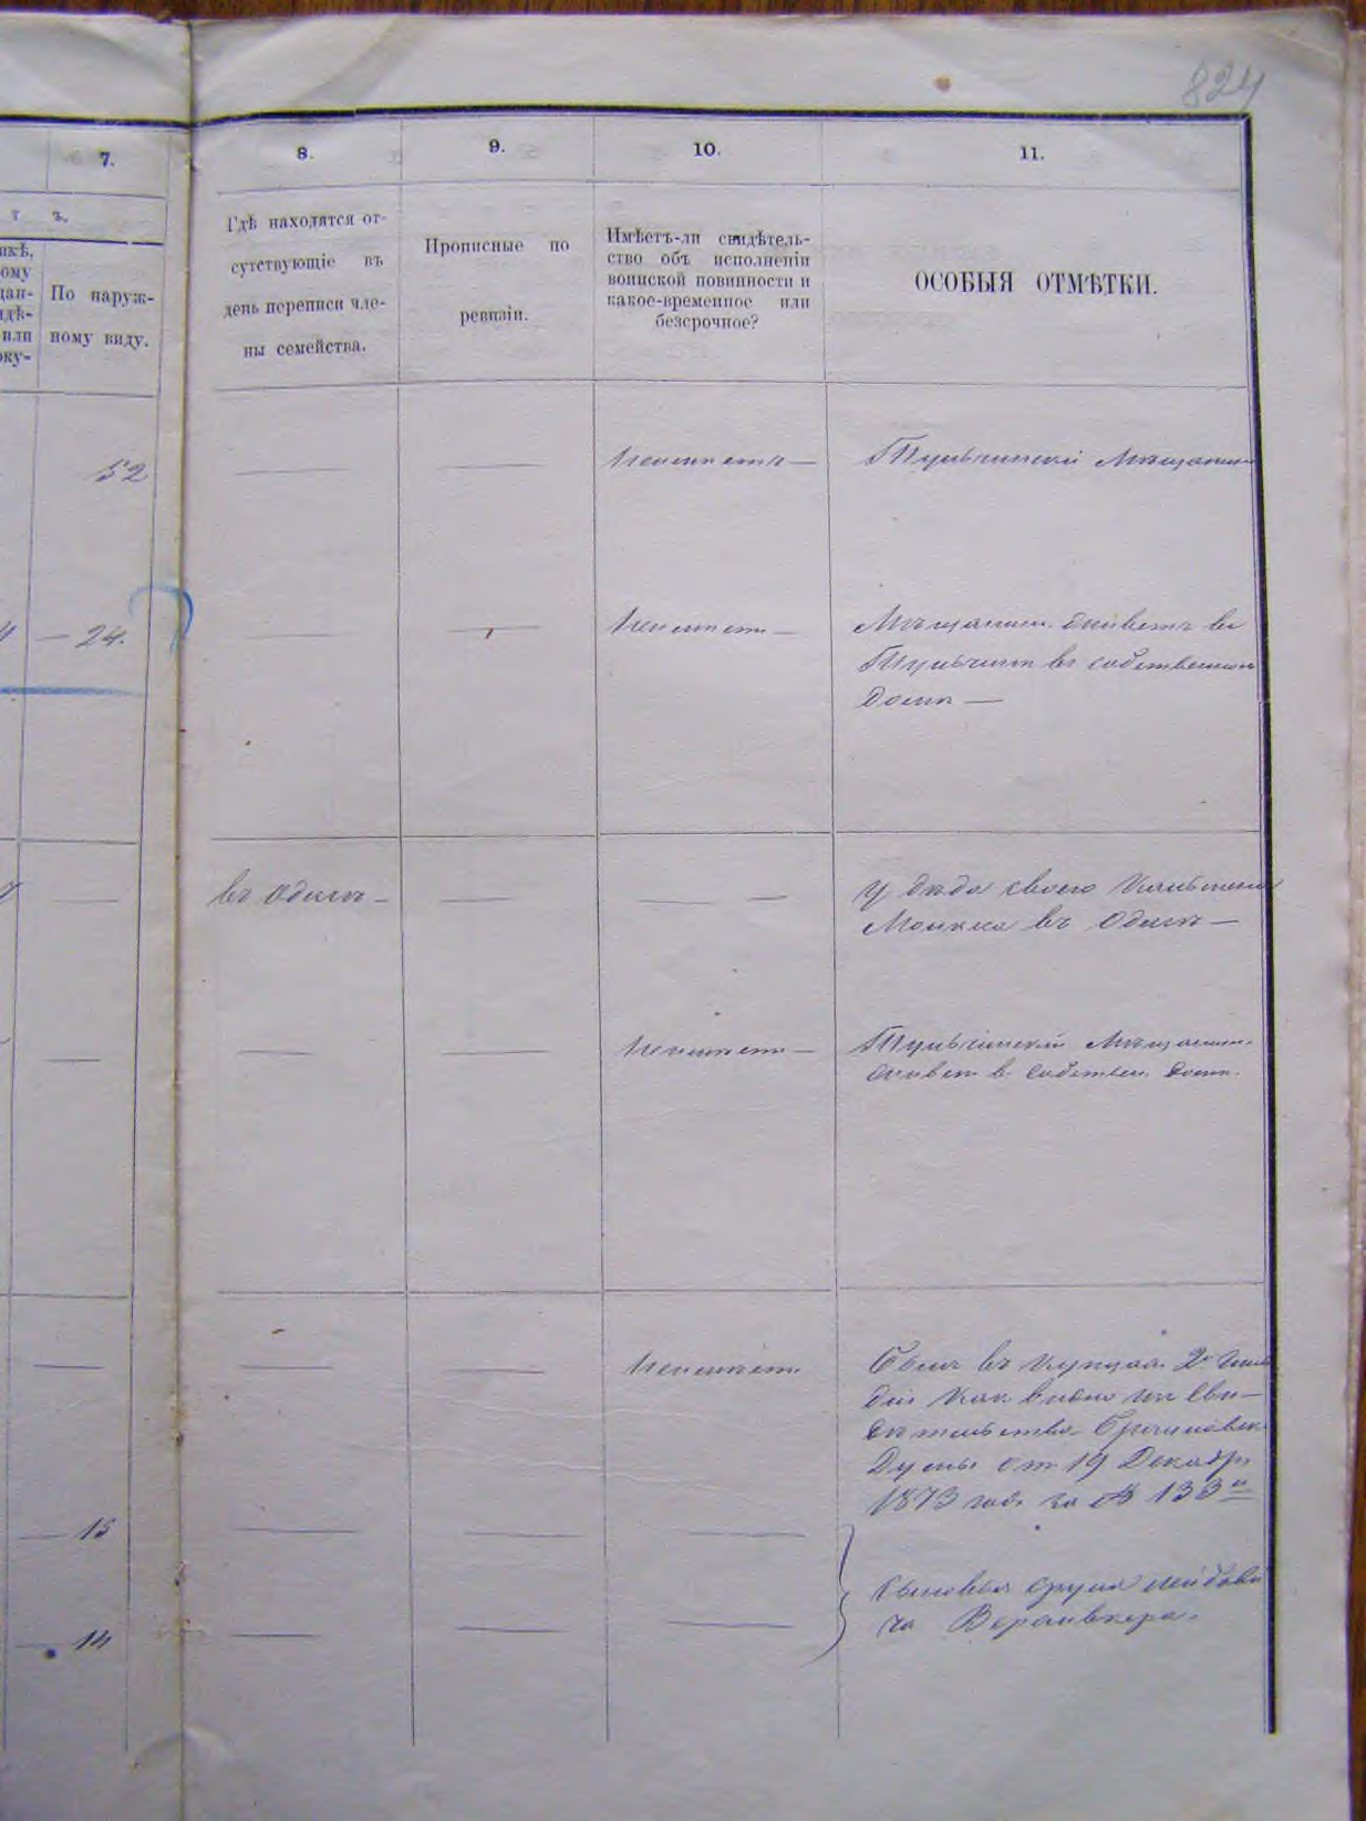 824
7. 8. 9. 10. 11.
т ъ.
По наруж-
ному виду.
Гдѣ находятся от-
сутствующіе въ
день переписи чле-
ны семейства.
Прописные по
ревизіи.
Имѣетъ-ли свидѣтель-
ство объ исполненіи
воинской повинности и
какое-временное или
безсрочное?
ОСОБЫЯ ОТМѢТКИ.
52 — — Неимѣетъ — Тульчинскій Мѣщанинъ
— 24. — — Неимѣетъ — Мѣщанин. живетъ въ
Тульчинѣ въ собственном
Домѣ —
— въ Одесѣ — — — — у дѣда своего
въ Одесѣ —
— — — Неимѣет — Тульчинскій Мѣщанин.
живет в собствен. домѣ.
— — — Неимѣетъ Былъ въ Купцах 2й Гиль
діи Как видно из Сви-
дѣтельства
Думы от 19 Декабря
1873 года за № 133м
— 15 — — — Сыновья
— 14 — — —